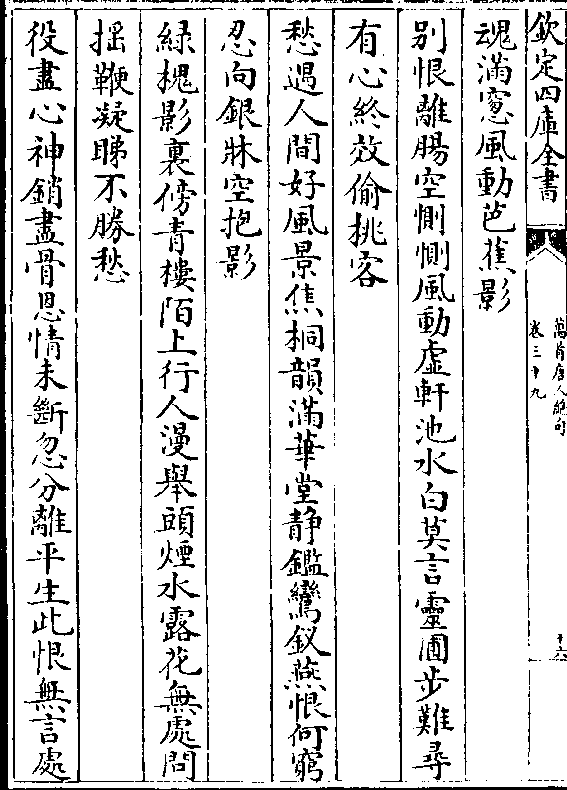 欽定四庫全書
萬首唐人絶句
卷三十九
十六
魂滿窓風動芭蕉影
别恨離腸空惻惻風動虚軒池水白莫言靈圃步難尋
有心終效偷桃客
愁過人間好風景焦桐韻滿華堂静鑑鸞釵燕恨何窮
忍向銀牀空抱影
緑槐影裏傍青樓陌上行人漫舉頭煙水露花無處問
揺鞭凝睇不勝愁
役盡心神銷盡骨恩情未斷忽分離平生此恨無言處